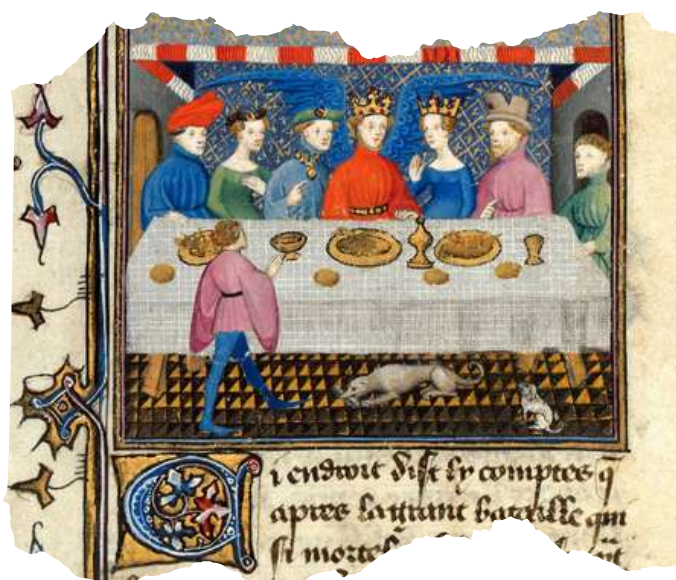 Ci endroit dist ly comptes q̄
apres la grant bataille qui
si mortel